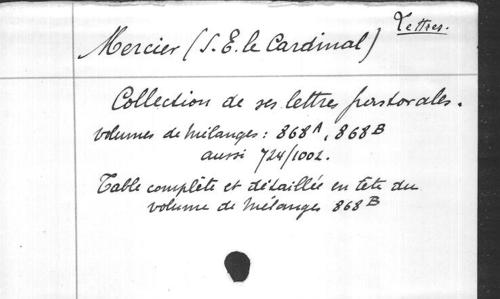 Lettres.
Mercier (S. E. le Cardinal)
Collection de ses lettres pastorales.
volumes de mélanges : 868A, 868B
aussi 724/1002.
Table complète et détaillée en tête du
volume de mélanges 868B